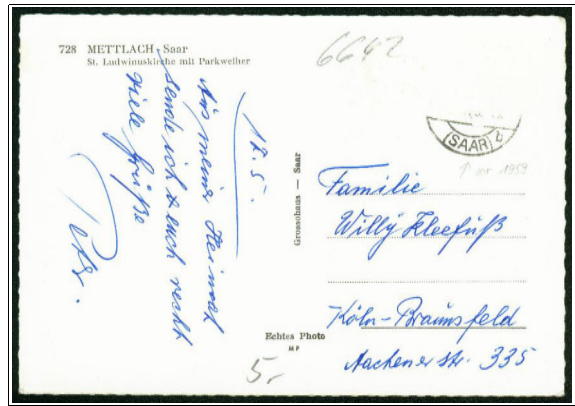 728 METTLACH, Saar
St. Ludwinuskirche mit Parkweiher
6642
17.5.
Aus meiner Heimat
sende ich euch recht
viele Grüße
Peter.
Grosshaus — Saar
(SAAR) b
vor 1959
Familie
Willy Kleefuß
Köln-Braunsfeld
Aachener str. 335
Echtes Photo
MP
5,-